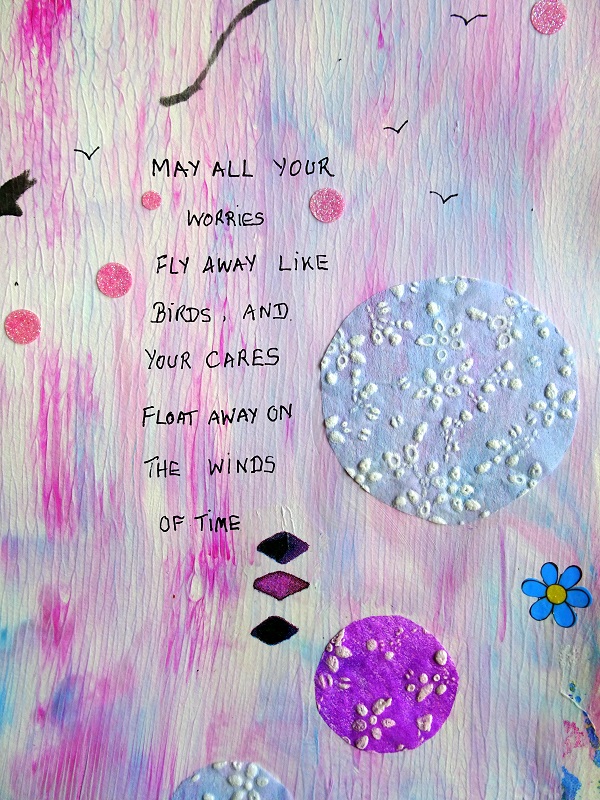 MAY ALL YOUR
WORRIES
FLY AWAY LIKE
BIRDS, AND
YOUR CARES
FLOAT AWAY ON
THE WINDS
OF TIME